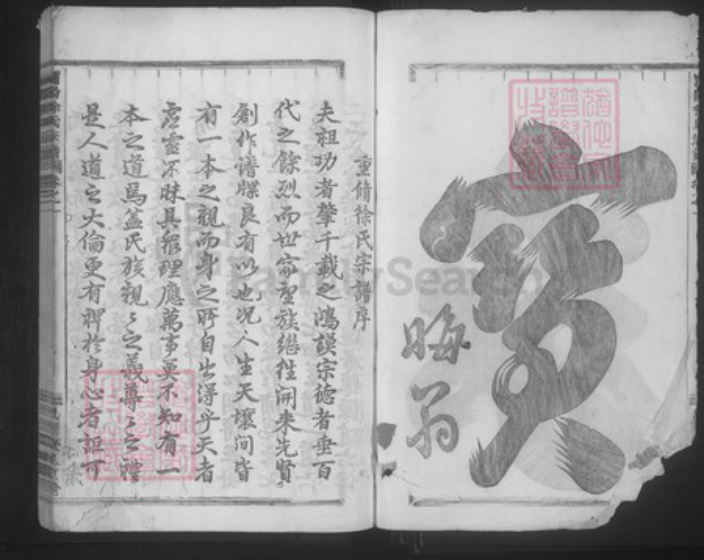 寶
晦翁
重脩徐氏宗譜序
夫祖功者肇千載之鴻謨宗德者垂百
代之餘烈而世家望族繼往開來先賢
創作譜牒良有以也況人生天壤間皆
有一本之親而身之所自出得乎天者
虛靈不昧具衆理應萬事莫不知有一
本之道焉蓋氏族親之義尊之禮
是人道之大倫更有裨於身心者詎可